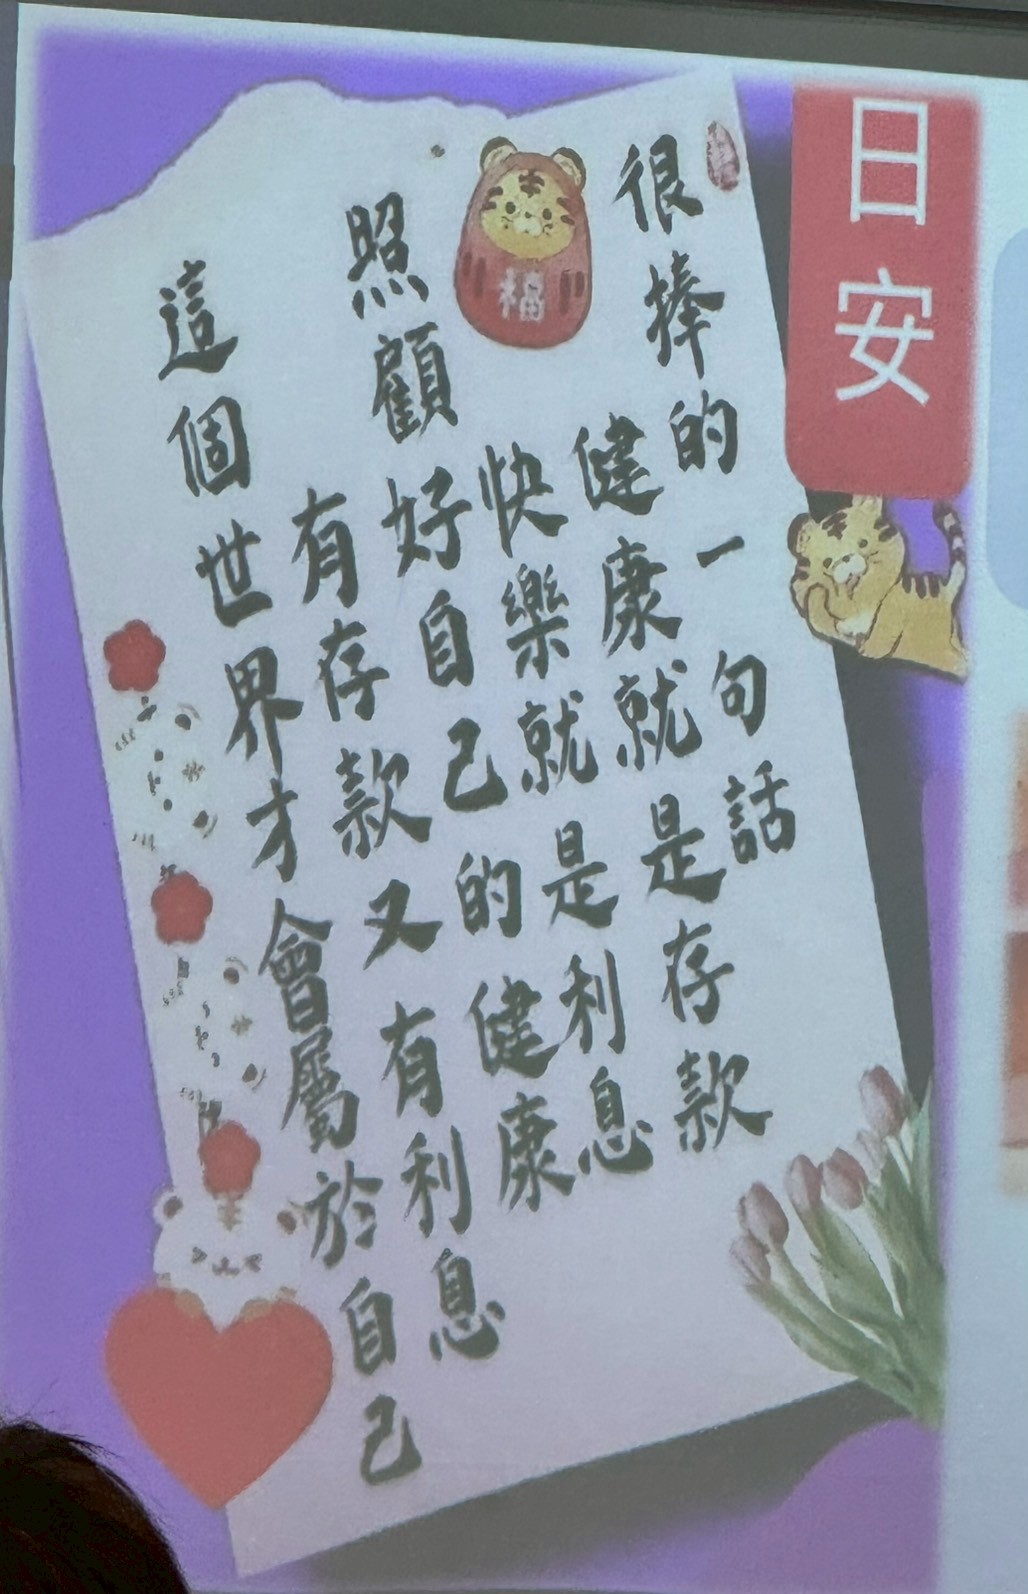 日安
很捧的一句話
健康就是存款
快樂就是利息
照顧好自己的健康
有存款又有利息
這個世界才會屬於自己
福